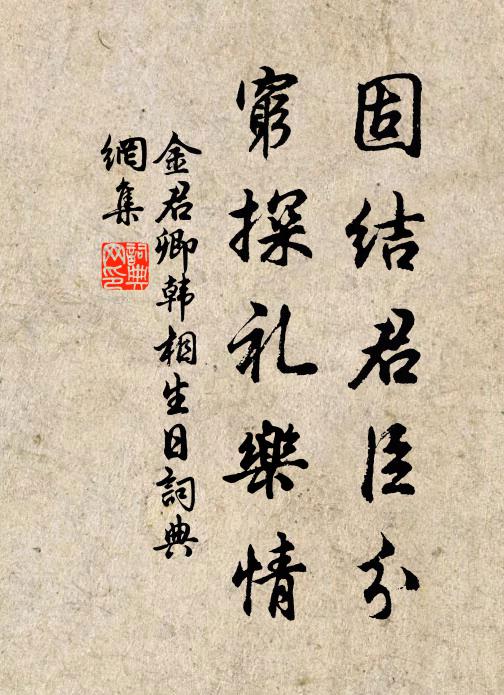 固结君臣分
窮探礼樂情
金君卿韩相生日詞典
網集
詞典
网印